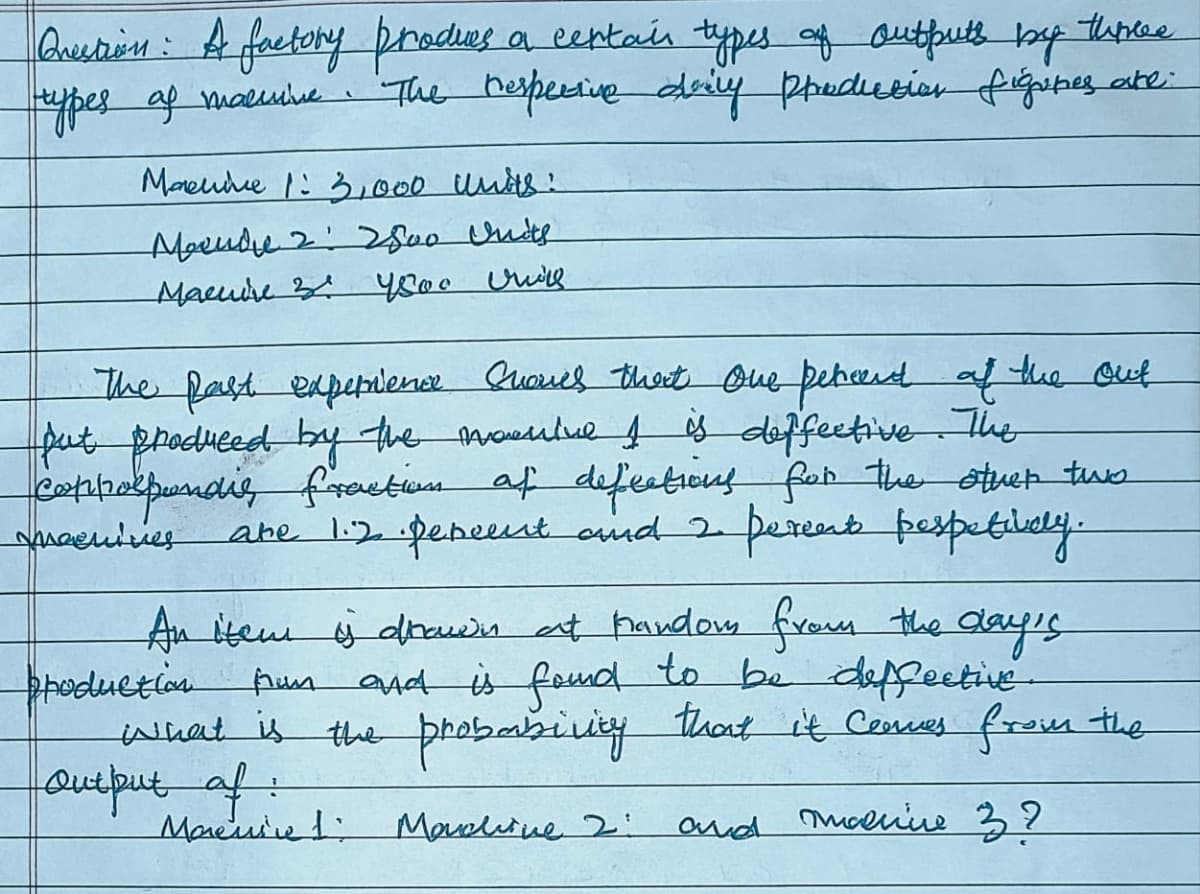 Question: A factory produces a certain types of outputs by three
types of machine. The respective daily production figures are:
Machine 1: 3,000 Units:
Machine 2: 2500 Units
Machine 3: 4500 Units
The Past experience Shows that One percent of the out
put produced by the machine 1 is deffective. The
corrospondig fraction of defections for the other two
machines are 1.2 percent and 2 percent respetively.
An item is drawn at random from the day's
production run and is found to be deffective.
What is the probability that it Comes from the
Output of:
Machine 1: Machine 2: and machine 3?